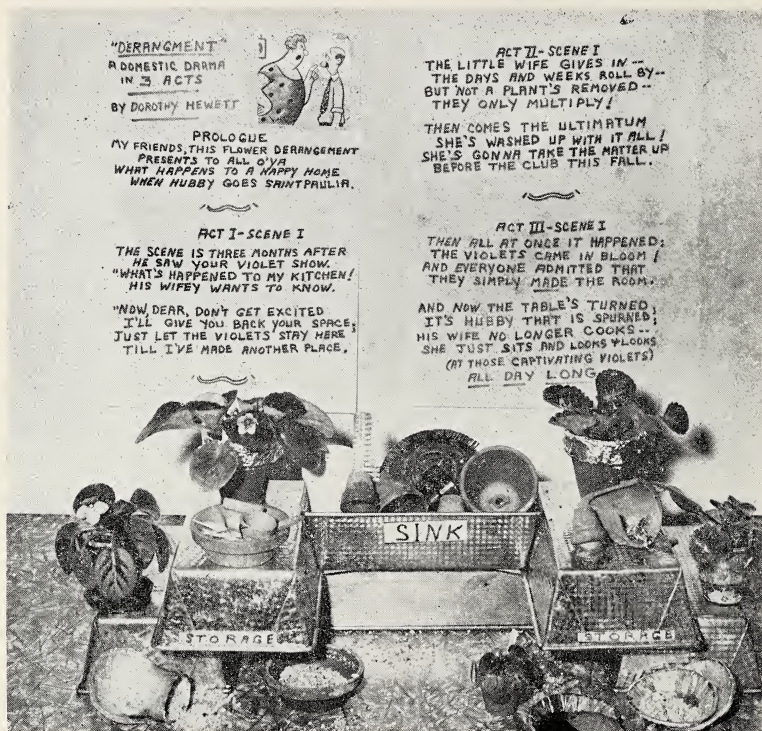 "DERANGMENT"
A DOMESTIC DRAMA
IN 3 ACTS
BY DOROTHY HEWETT
PROLOGUE
MY FRIENDS, THIS FLOWER DERANGEMENT
PRESENTS TO ALL O'YA
WHAT HAPPENS TO A HAPPY HOME
WHEN HUBBY GOES SAINTPAULIA.
ACT I-SCENE I
THE SCENE IS THREE MONTHS AFTER
HE SAW YOUR VIOLET SHOW.
"WHAT'S HAPPENED TO MY KITCHEN!
HIS WIFEY WANTS TO KNOW.
"NOW, DEAR, DON'T GET EXCITED
I'LL GIVE YOU BACK YOUR SPACE;
JUST LET THE VIOLETS STAY HERE
TILL I'VE MADE ANOTHER PLACE.
ACT II-SCENE I
THE LITTLE WIFE GIVES IN--
THE DAYS AND WEEKS ROLL BY--
BUT NOT A PLANT'S REMOVED--
THEY ONLY MULTIPLY!
THEN COMES THE ULTIMATUM
SHE'S WASHED UP WITH IT ALL!
SHE'S GONNA TAKE THE MATTER UP
BEFORE THE CLUB THIS FALL.
ACT III-SCENE I
THEN ALL AT ONCE IT HAPPENED;
THE VIOLETS CAME IN BLOOM!
AND EVERYONE ADMITTED THAT
THEY SIMPLY MADE THE ROOM.
AND NOW THE TABLE'S TURNED;
IT'S HUBBY THAT IS SPURNED;
HIS WIFE NO LONGER COOKS--
SHE JUST SITS AND LOOKS & LOOKS
(AT THOSE CAPTIVATING VIOLETS)
ALL DAY LONG
SINK
STORAGE
STORAGE